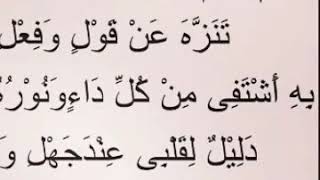 تَنَزَّهَ عَنْ قَوْلٍ وَفِعْلٍ
بِهِ أَشْتَفِى مِنْ كُلِّ دَاءٍ وَنُوْرُهُ
دَلِيْلٌ لِقَلْبِى عِنْدَ جَهْلٍ وَ